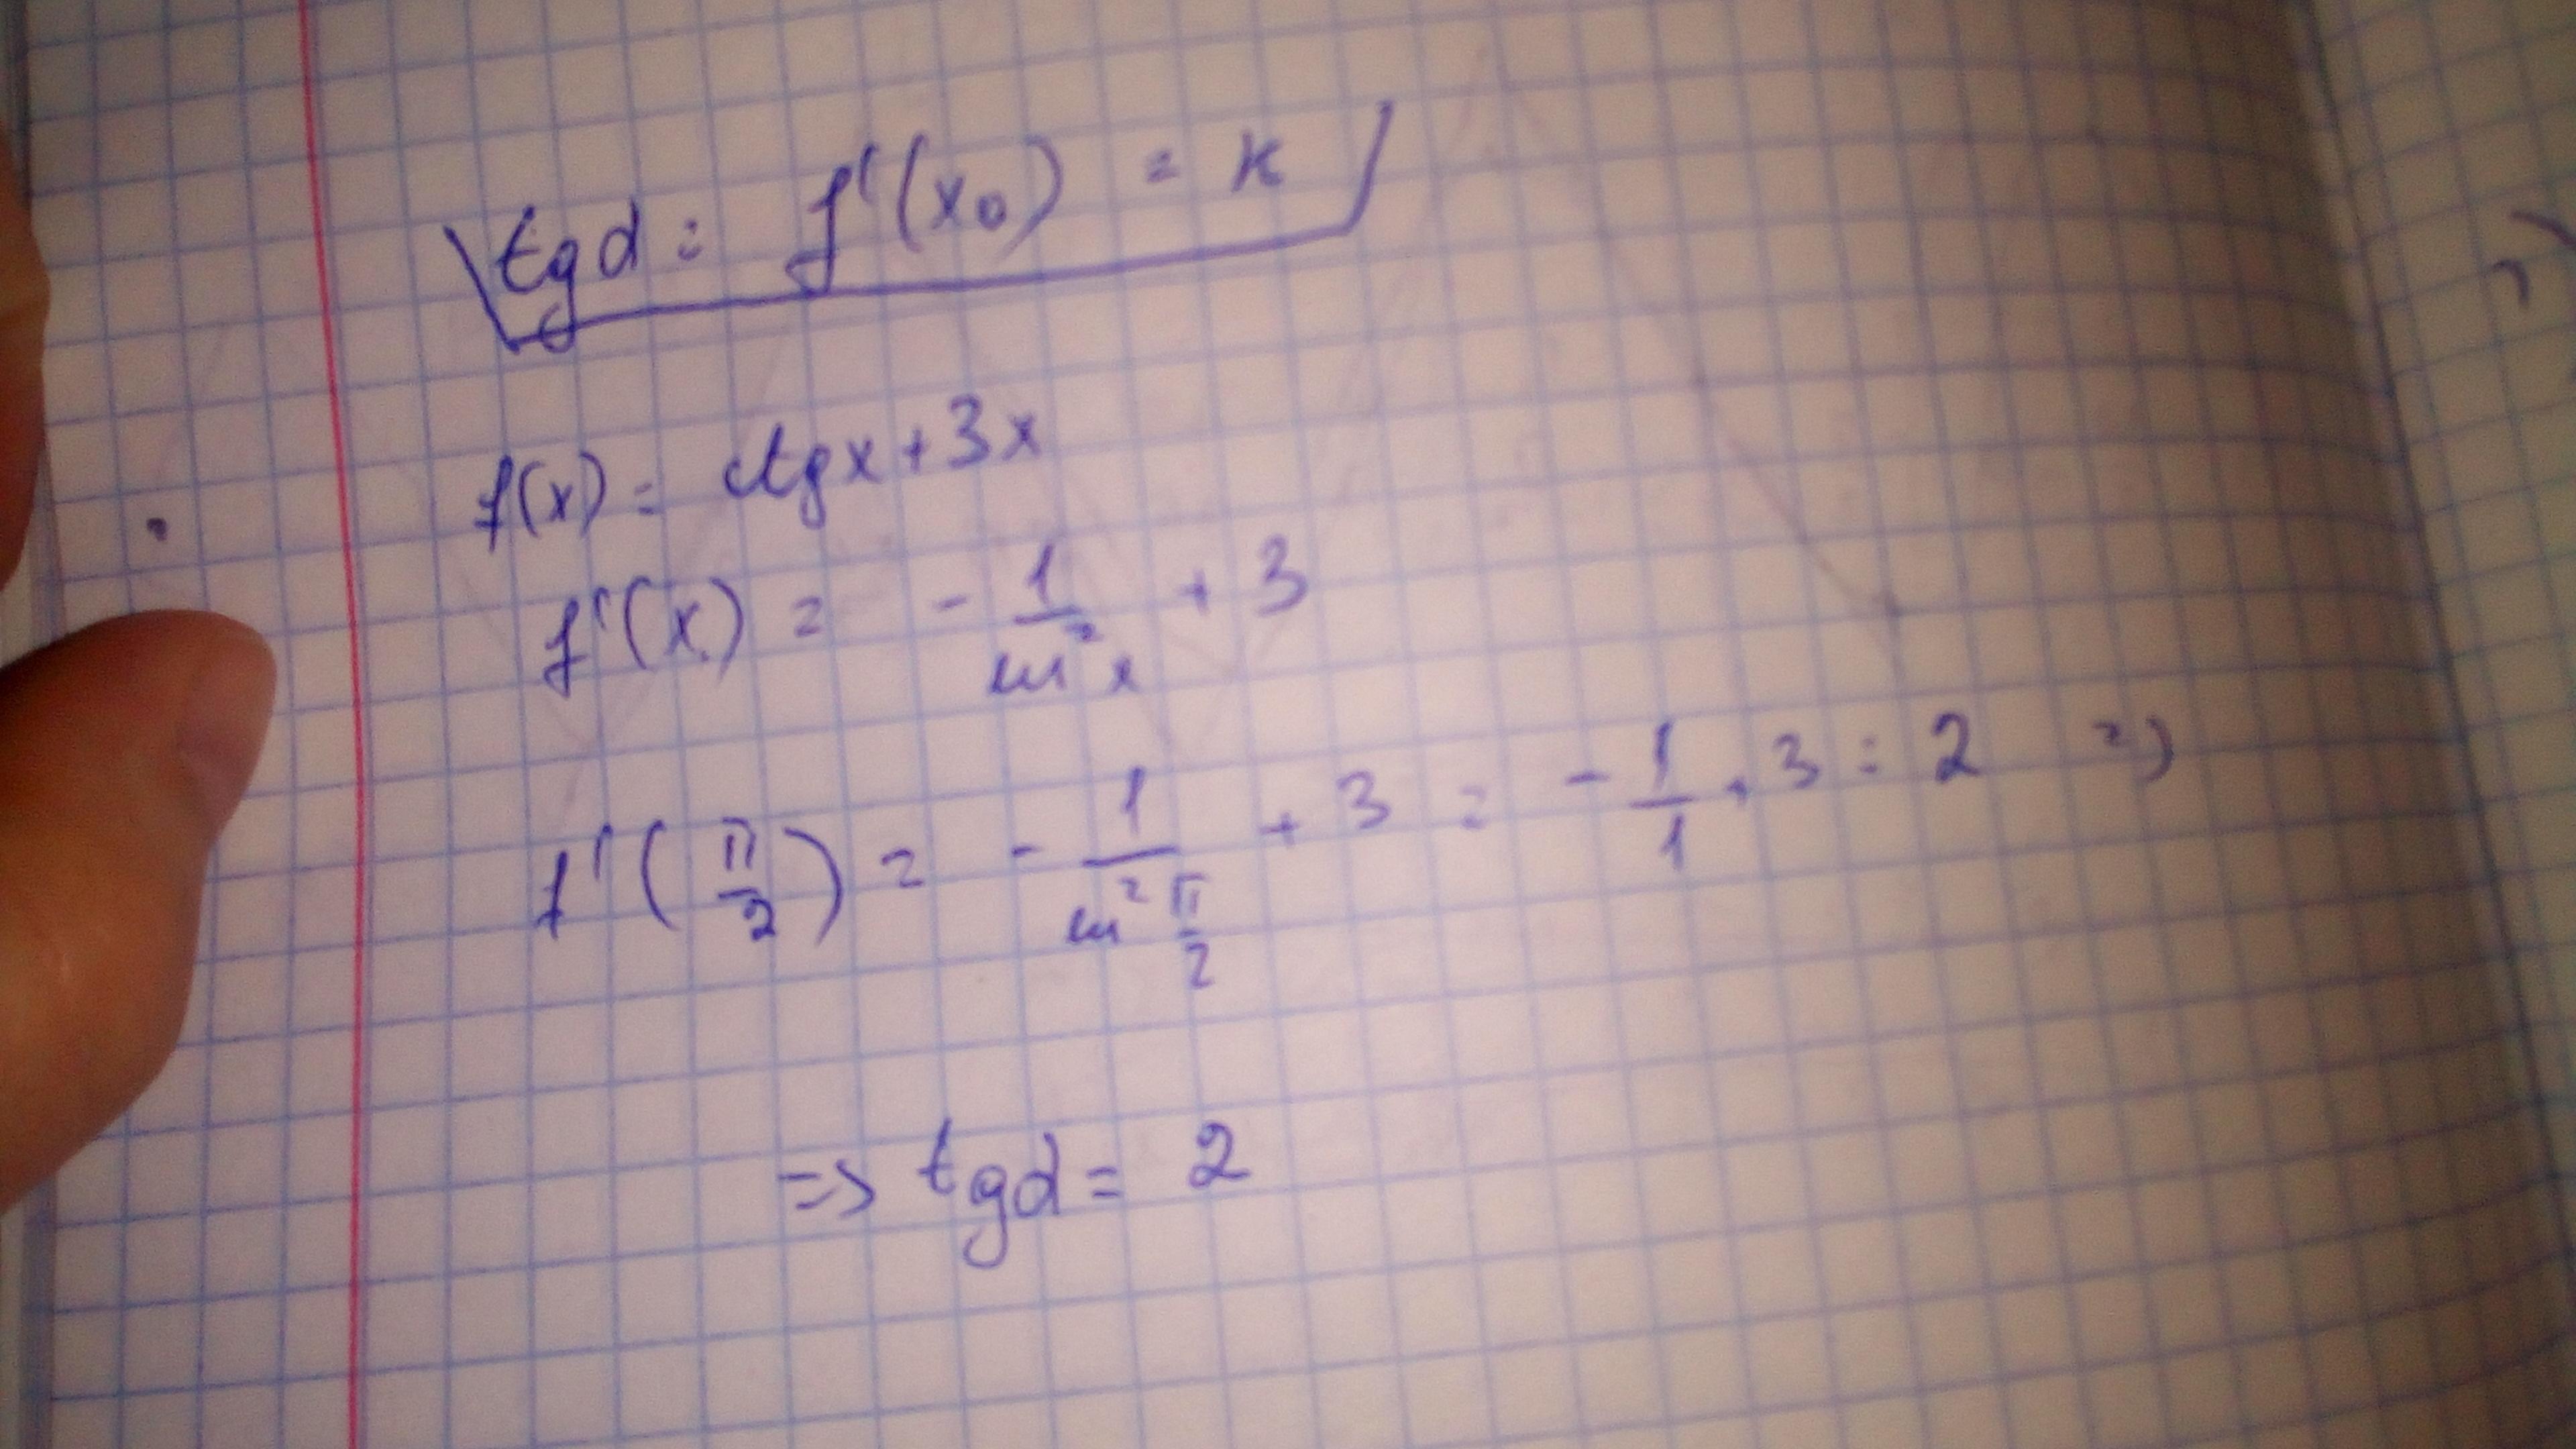 tgα = f'(x₀) = k
f(x) = ctgx + 3x
f'(x) = - 1/sin²x + 3
f'(π/2) = - 1/sin² π/2 + 3 = - 1/1 + 3 = 2 =>
=> tgα = 2